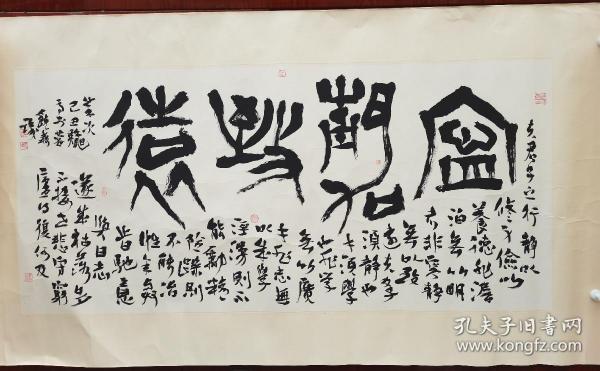 寧靜致遠
夫君子之行靜以
修身儉以
養德非澹
泊無以明
志非寧靜
無以致
遠夫學
須靜也
才須學
也非學
無以廣
才非志無
以成學
淫漫則不
能勵精
險躁則
不能冶
性年與
時馳意
與日去
遂成枯落多
不接世悲守窮
廬將復何及
歲次
己丑
孔夫子旧书网
www.kongfz.com